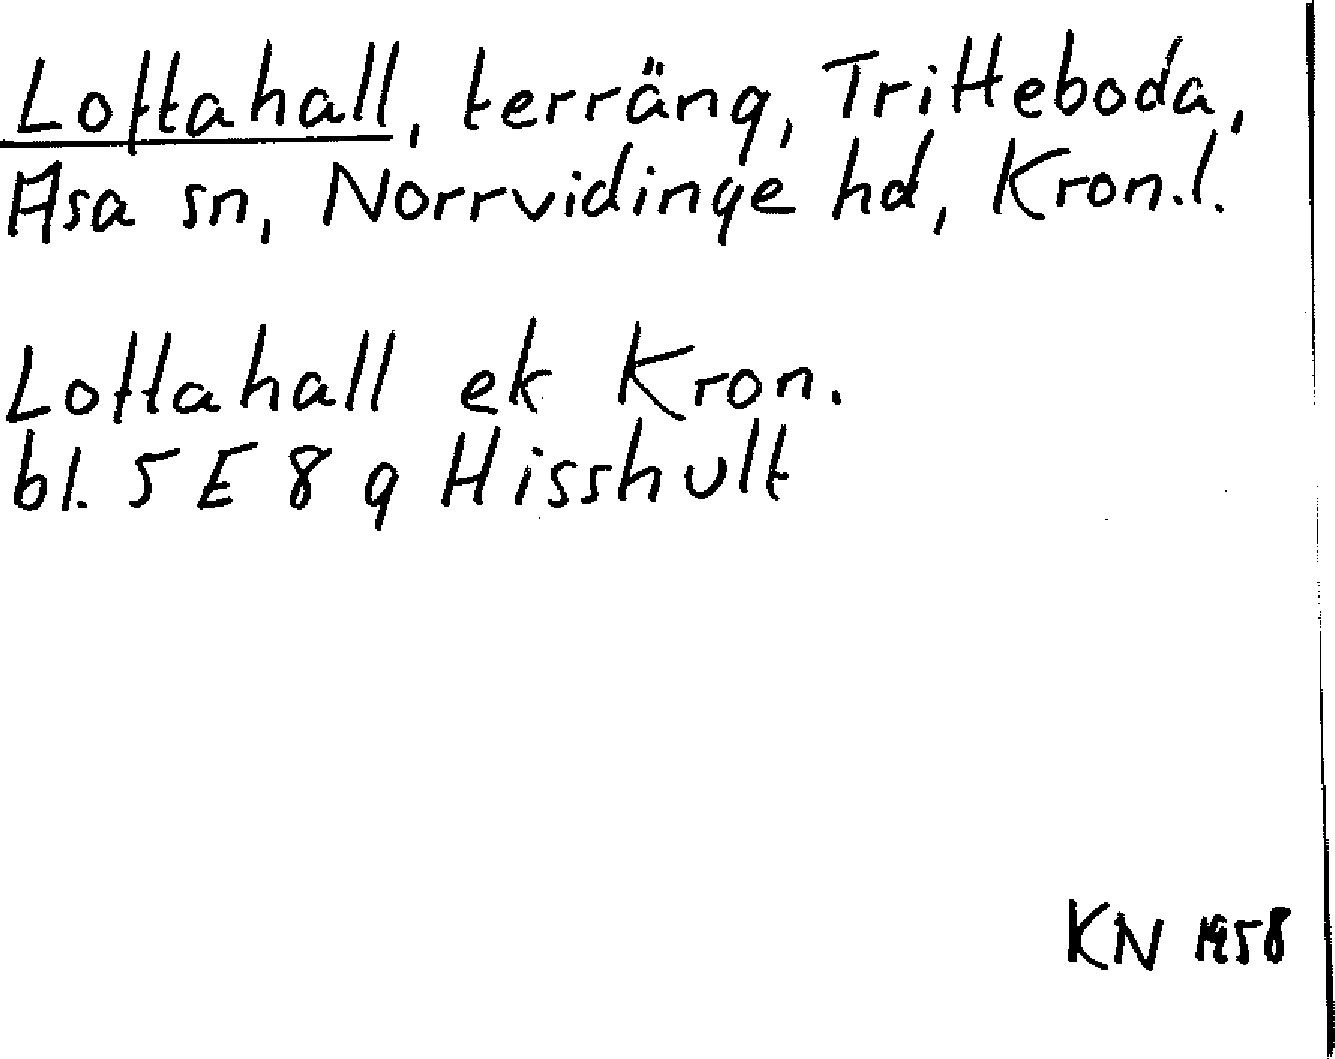 Lottahall, terräng, Tritteboda,
Asa sn, Norrvidinge hd, Kron.l.
Lottahall ek Kron.
bl. 5 E 8 g Hisshult
KN 1958